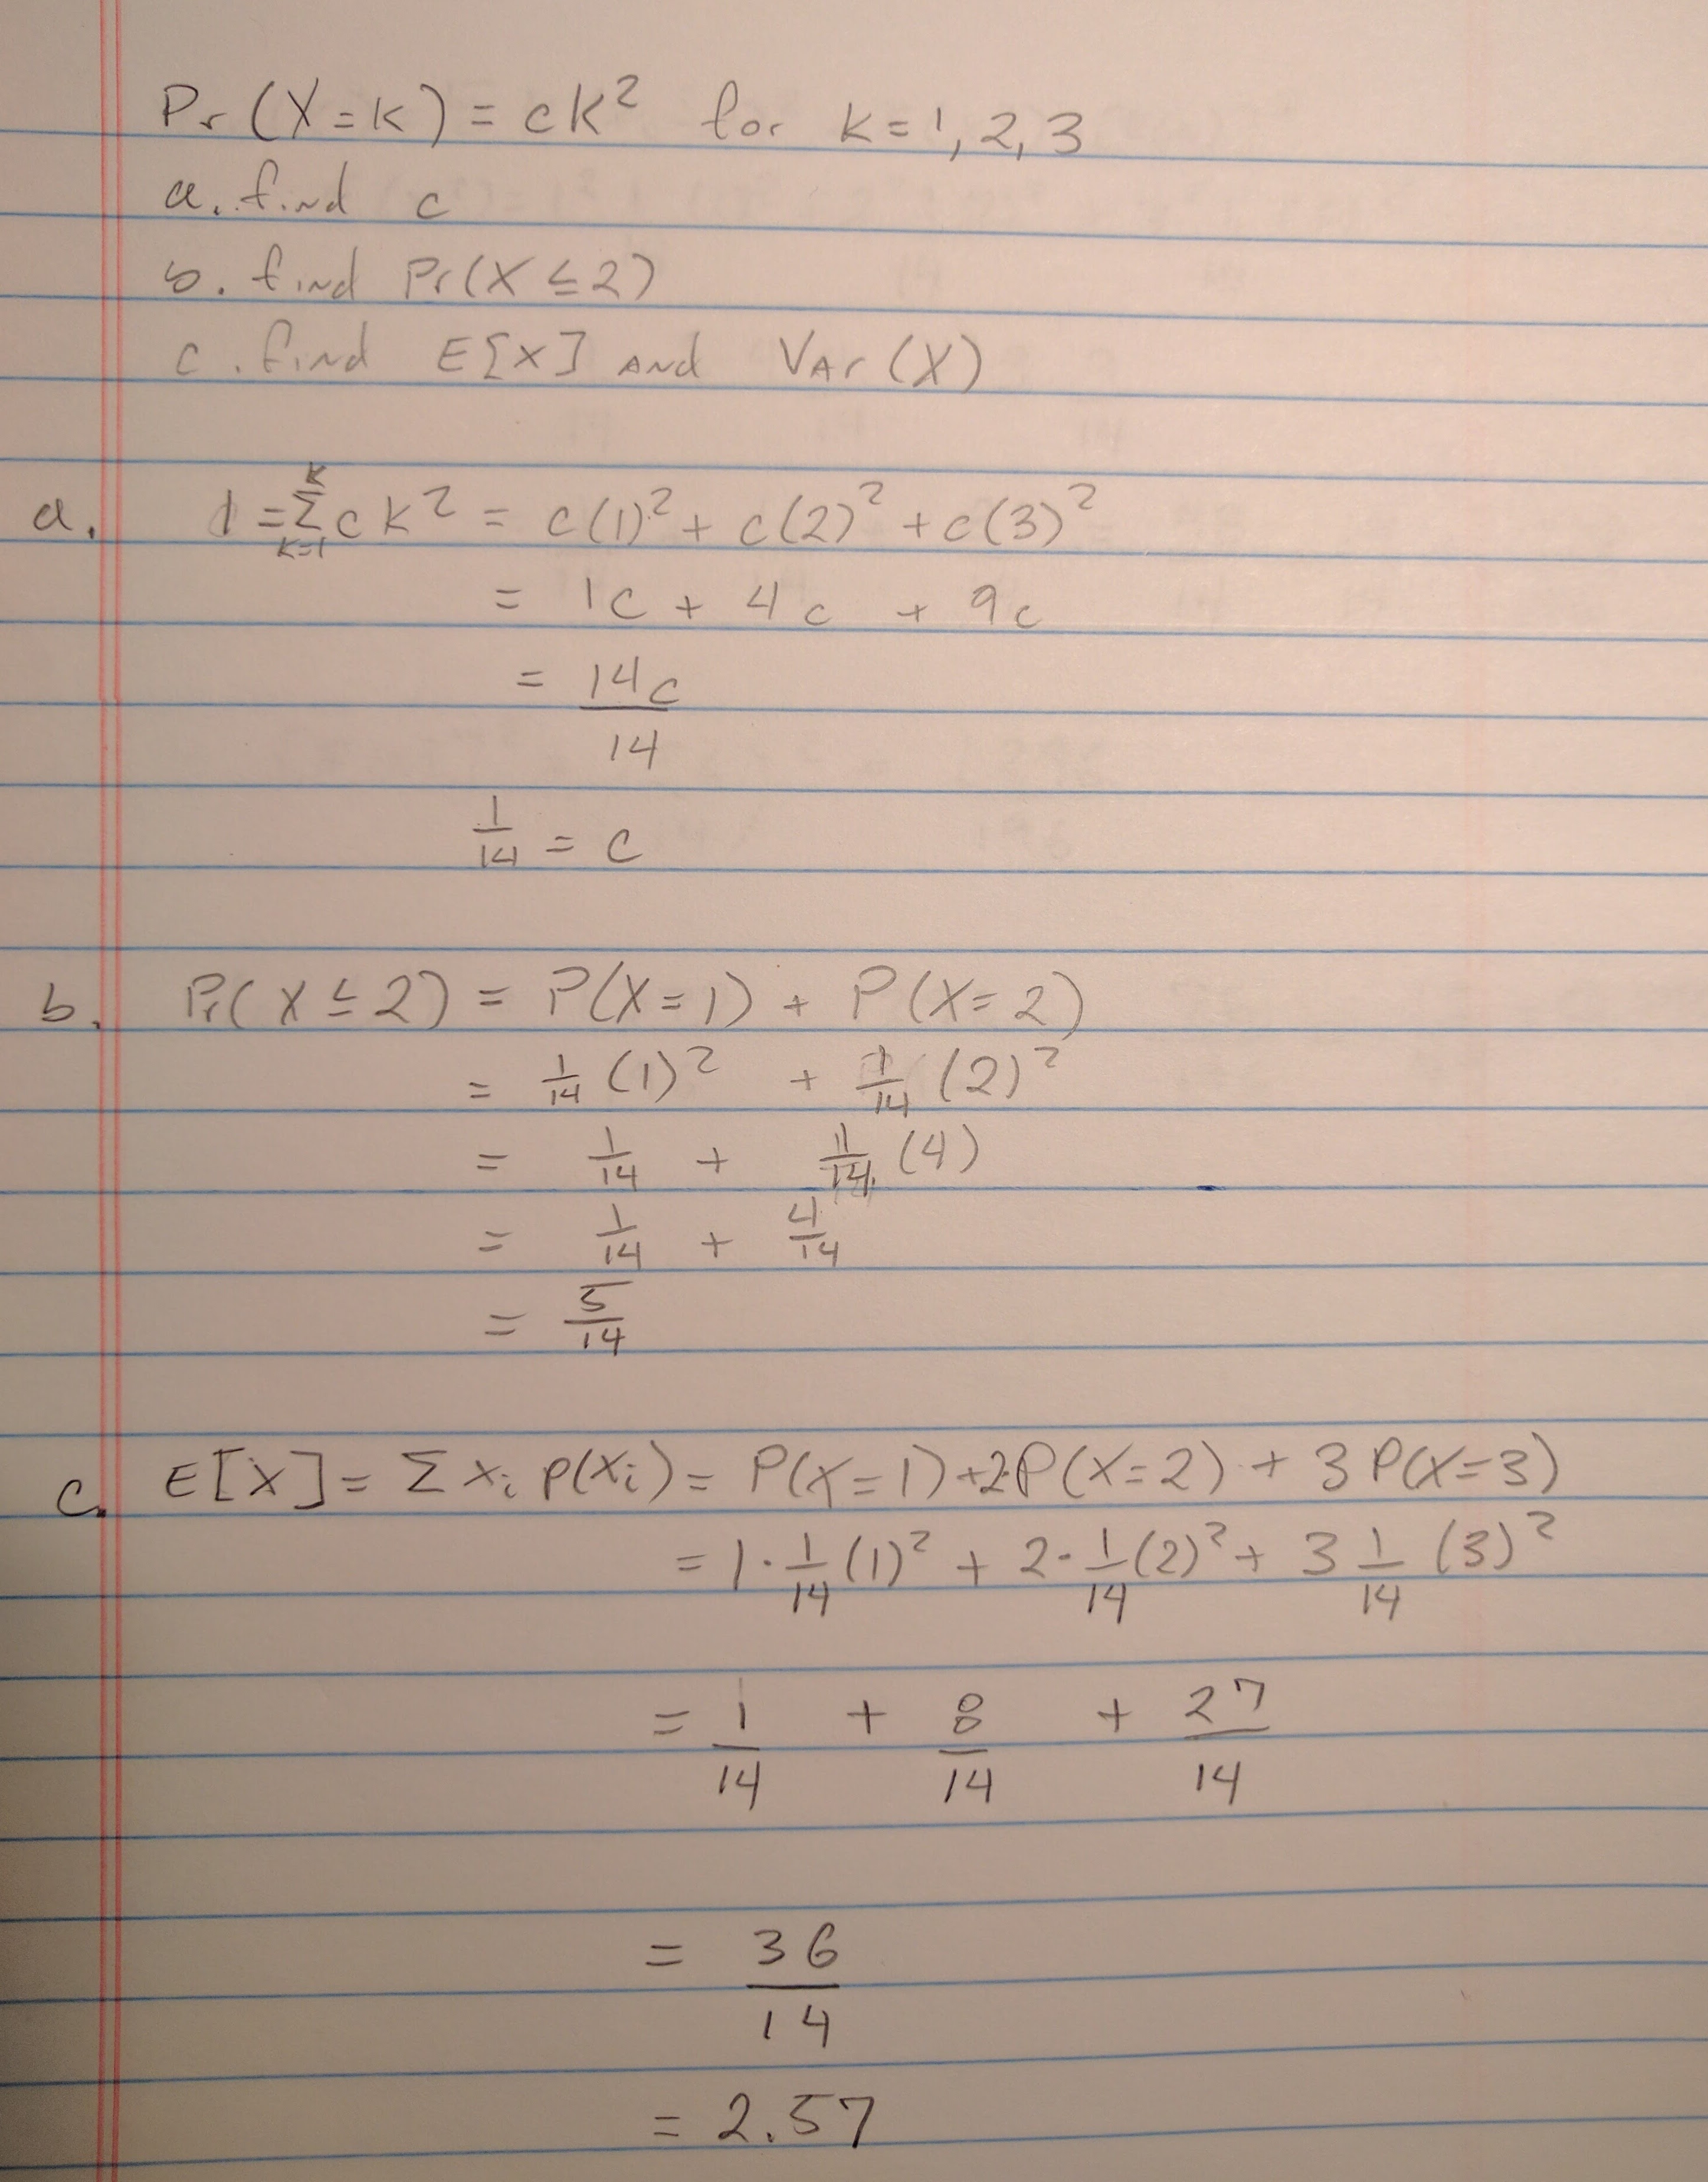 Pr(X=k) = ck² for k=1,2,3
a. find c
b. find Pr(X≤2)
c. find E[X] and Var(X)
a. 1 = Σ_{k=1}^{k} ck² = c(1)² + c(2)² + c(3)²
= 1c + 4c + 9c
= 14c/14
1/14 = c
b. Pr(X≤2) = P(X=1) + P(X=2)
= 1/14 (1)² + 1/14 (2)²
= 1/14 + 1/14 (4)
= 1/14 + 4/14
= 5/14
c. E[X] = Σ xᵢ p(xᵢ) = P(X=1) + 2·P(X=2) + 3P(X=3)
= 1·1/14 (1)² + 2·1/14 (2)² + 3 1/14 (3)²
= 1/14 + 8/14 + 27/14
= 36/14
= 2.57